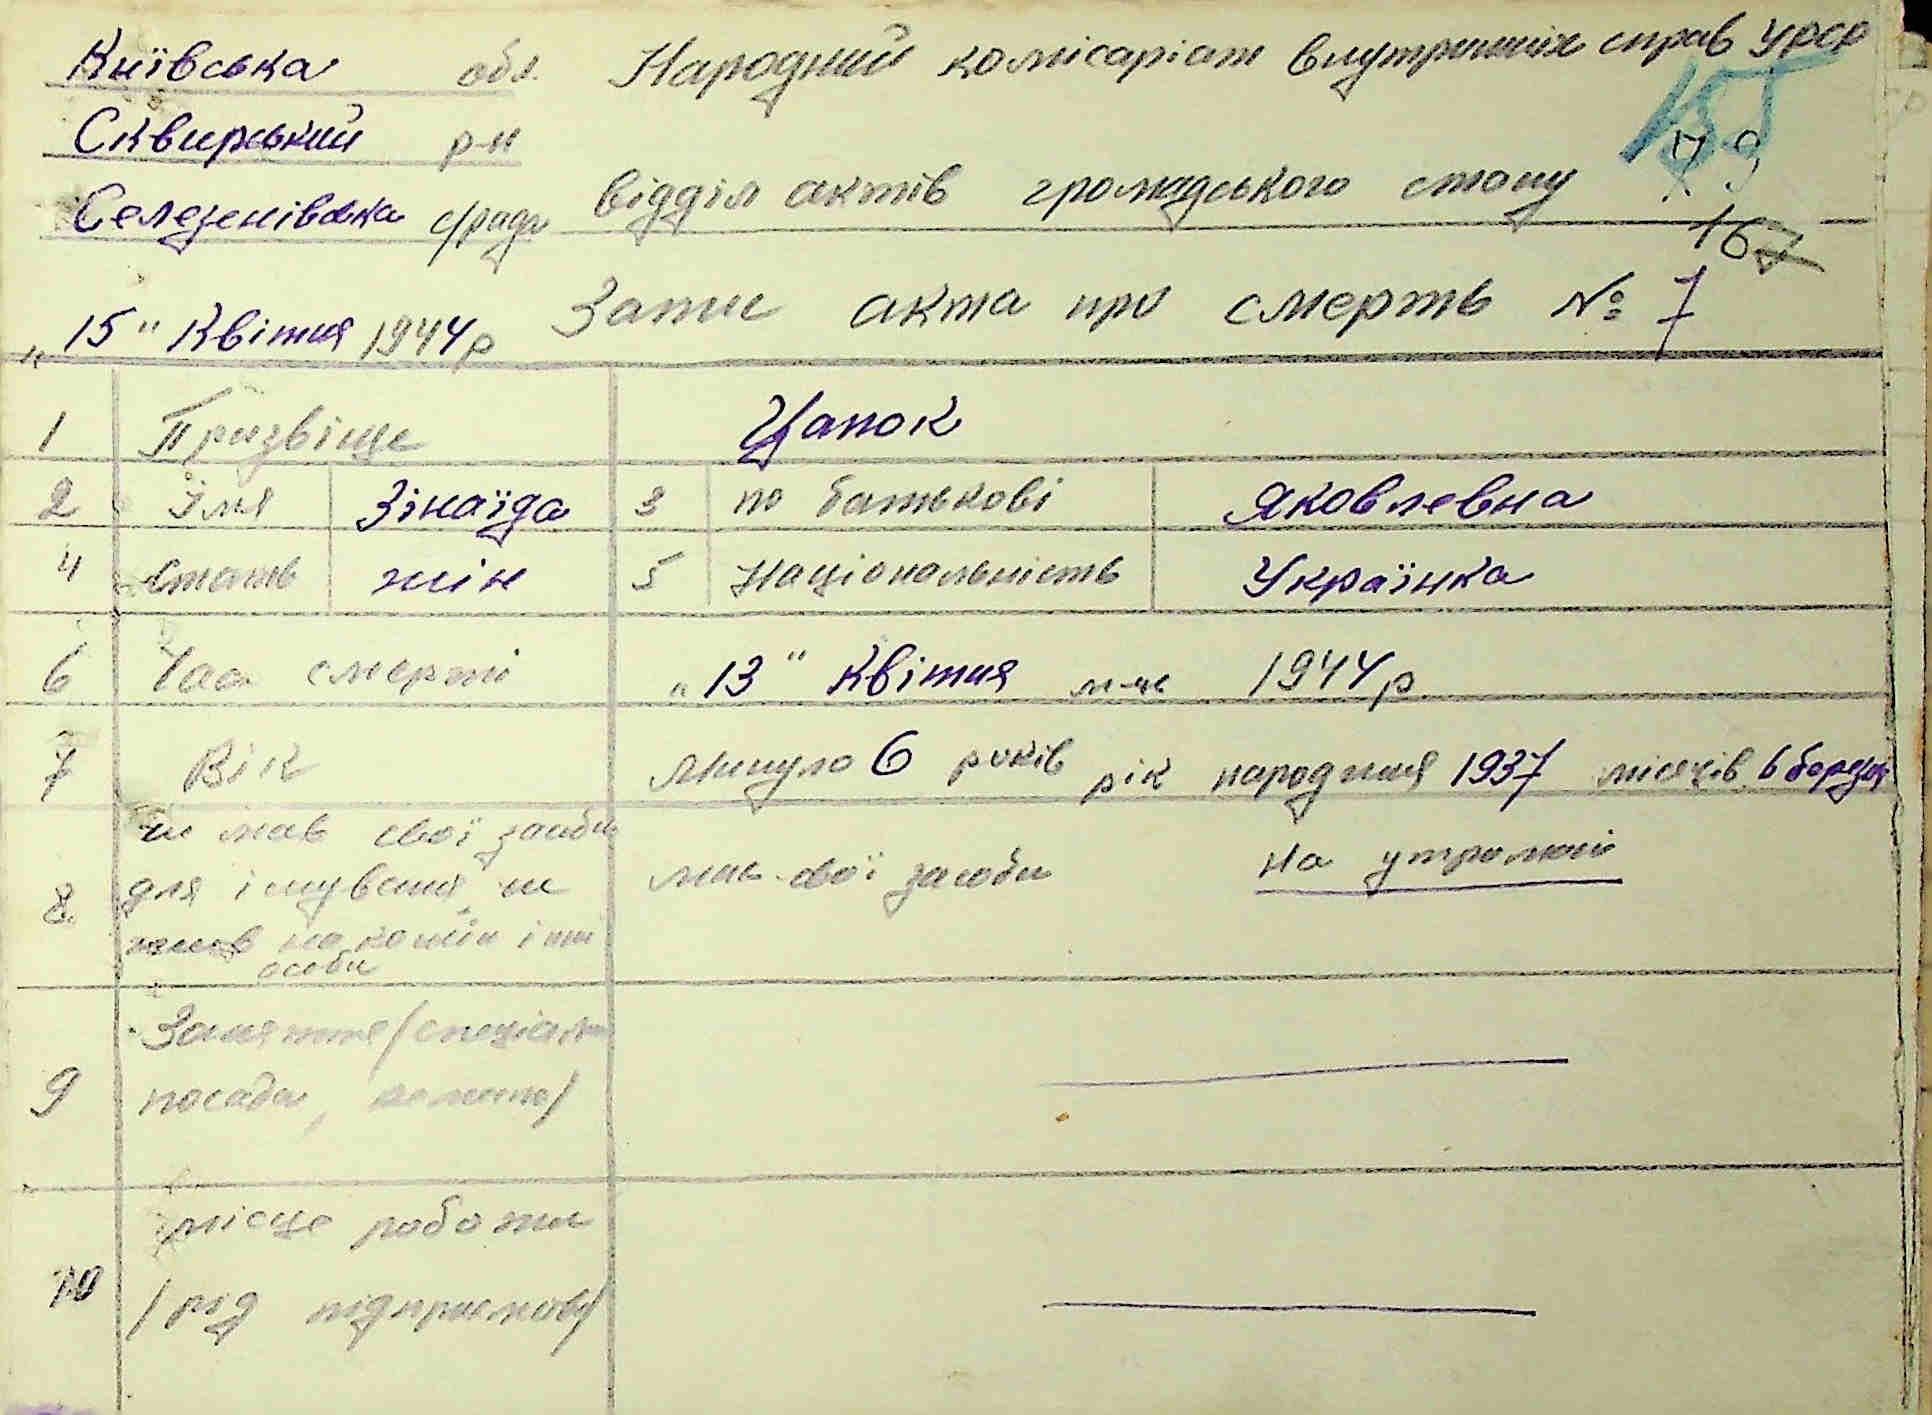 Київська обл. Народний комісаріат внутрішніх справ УРСР
155
Сквирський р-н
79
Селезенівка с/рада відділ актів громадського стану
167
"15" Квітня 1944 р Запис акта про смерть № 7
1 Призвіще Цапок
2 Імя Зінаїда 3 по батькові Яковлевна
4 Стать жін 5 Національність Українка
6 Час смерті "13" Квітня м-ця 1944 р
7 Вік минуло 6 років рік народження 1937 місяців 6 березня
8 чи мав свої засоби для існування, чи жив на кошти інш особи мав свої засоби на утриманні
9 Заняття /спеціальн посада,
10 місце роботи /рід підприємства/